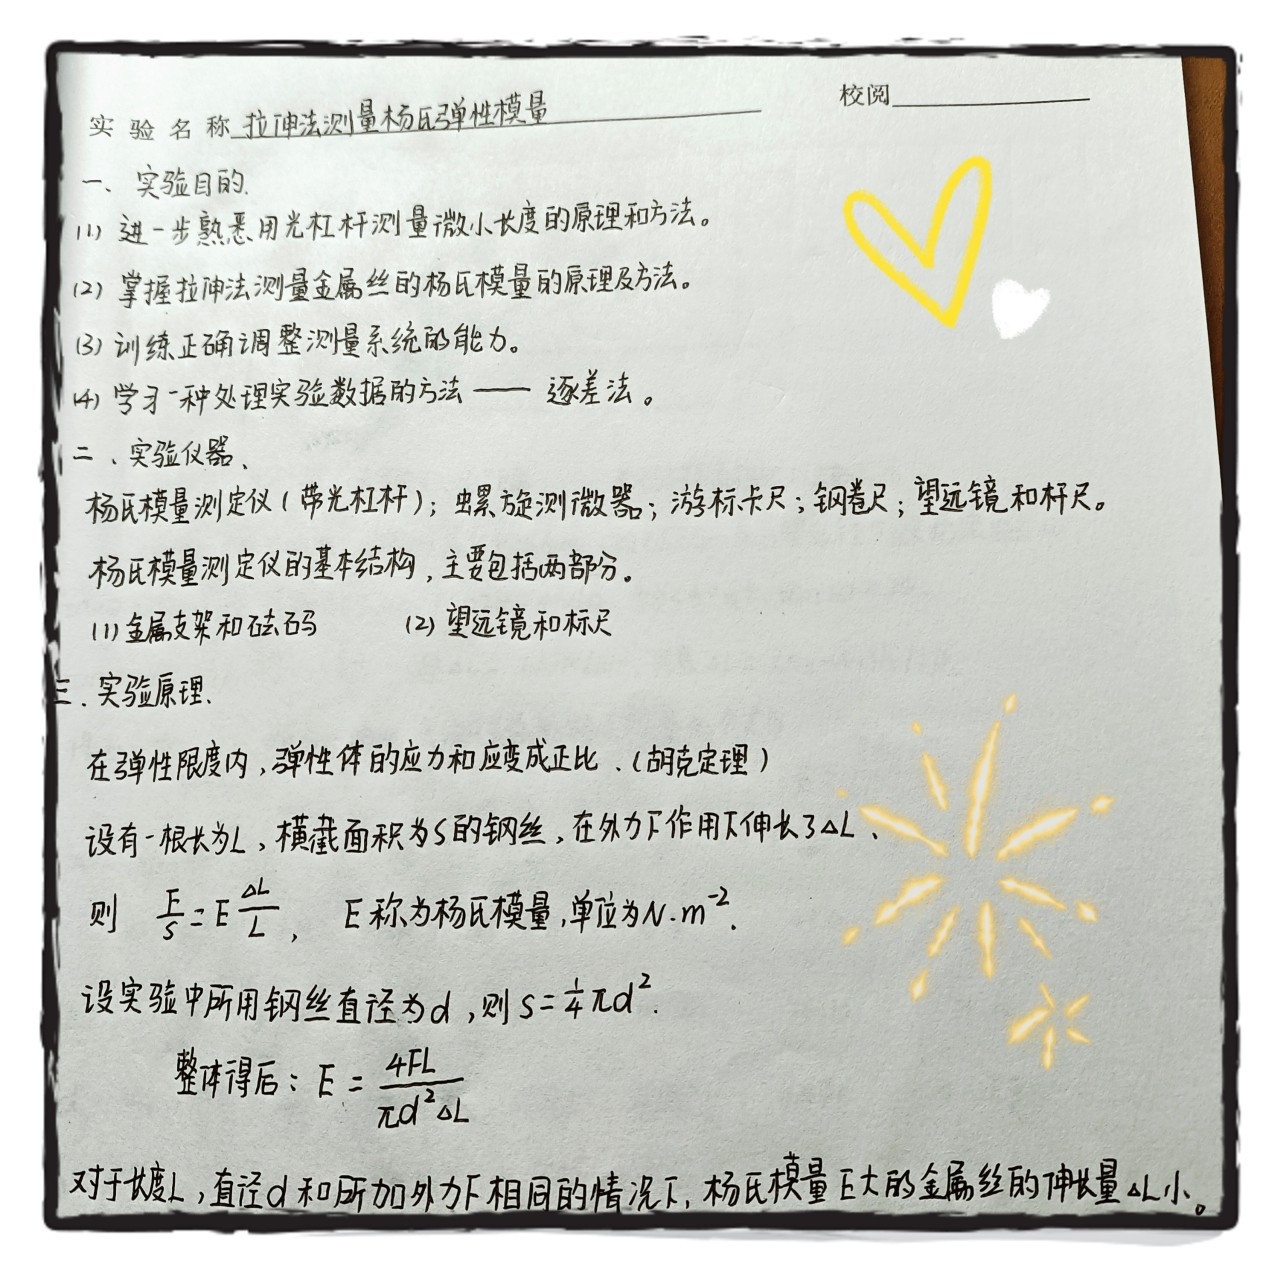 实验名称 拉伸法测量杨氏弹性模量 校阅
一、实验目的.
(1) 进一步熟悉用光杠杆测量微小长度的原理和方法。
(2) 掌握拉伸法测量金属丝的杨氏模量的原理及方法。
(3) 训练正确调整测量系统的能力。
(4) 学习一种处理实验数据的方法 —— 逐差法。
二、实验仪器、
杨氏模量测定仪(带光杠杆);螺旋测微器;游标卡尺;钢卷尺;望远镜和杆尺。
杨氏模量测定仪的基本结构,主要包括两部分。
(1) 金属支架和砝码 (2) 望远镜和标尺
三、实验原理、
在弹性限度内,弹性体的应力和应变成正比、(胡克定理)
设有一根长为L,横截面积为S的钢丝,在外力F作用下伸长了ΔL、
则 F/S = E ΔL/L, E称为杨氏模量,单位为N·m⁻².
设实验中所用钢丝直径为d,则S=¼πd².
整体得后:E = 4FL/πd²ΔL
对于长度L,直径d和所加外力F相同的情况下,杨氏模量E大的金属丝的伸长量ΔL小。